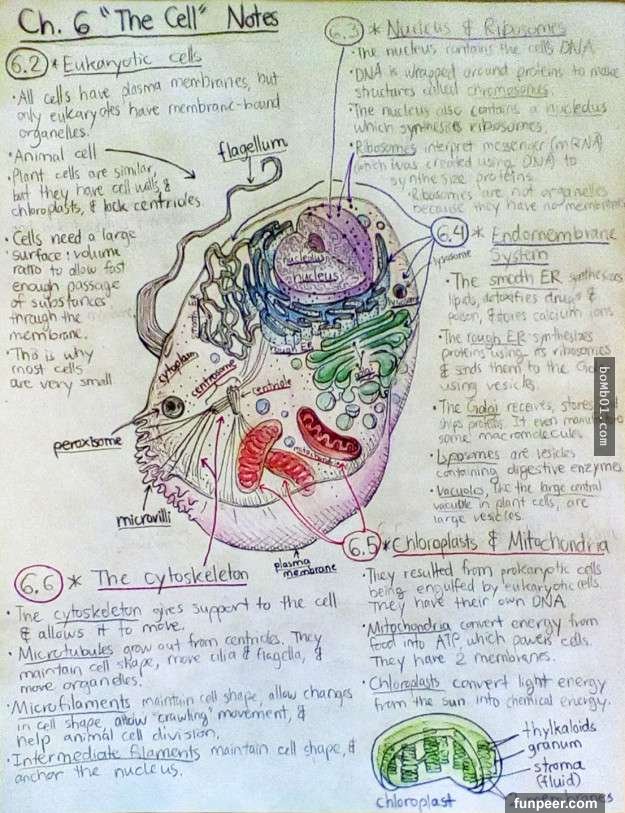 Ch. 6 "The Cell" Notes
6.2 * Eukaryotic cells
• All cells have plasma membranes, but
only eukaryotes have membrane-bound
organelles.
• Animal cell
• Plant cells are similar,
but they have cell walls &
chloroplasts, & lack centrioles.
• Cells need a large
surface : volume
ratio to allow fast
enough passage
of substances
through the
membrane.
• This is why
most cells
are very small
6.3 * Nucleus & Ribosomes
• The nucleus contains the cell's DNA
• DNA is wrapped around proteins to make
structures called chromosomes.
• The nucleus also contains a nucleolus
which synthesizes ribosomes.
• Ribosomes interpret messenger (mRNA)
(which was created using DNA) to
synthesize proteins.
• Ribosomes are not organelles
because they have no membrane
6.4 * Endomembrane
System
• The smooth ER synthesizes
lipids, detoxifies drugs &
poison, & stores calcium ions
• The rough ER synthesizes
proteins using its ribosomes
& sends them to the
using vesicles.
• The Golgi receives, stores
ships proteins. It even
some macromolecules.
• Lysosomes are vesicles
containing digestive enzymes
• Vacuoles, like the large central
vacuole in plant cells, are
large vesicles.
flagellum
nucleolus
nucleus
lysosome
smooth ER
rough ER
Golgi
cytoplasm
centrosome
centriole
peroxisome
mitochondria
microvilli
plasma
membrane
6.5 * Chloroplasts & Mitochondria
• They resulted from prokaryotic cells
being engulfed by eukaryotic cells.
They have their own DNA
• Mitochondria convert energy from
food into ATP, which powers cells.
They have 2 membranes.
• Chloroplasts convert light energy
from the sun into chemical energy.
thylkaloids
granum
stroma
(fluid)
chloroplast
6.6 * The Cytoskeleton
• The cytoskeleton gives support to the cell
& allows it to move.
• Microtubules grow out from centrioles. They
maintain cell shape, move cilia & flagella, &
move organelles.
• Microfilaments maintain cell shape, allow changes
in cell shape, allow "crawling" movement, &
help animal cell division.
• Intermediate filaments maintain cell shape, &
anchor the nucleus.
bomb01.com
funpeer.com